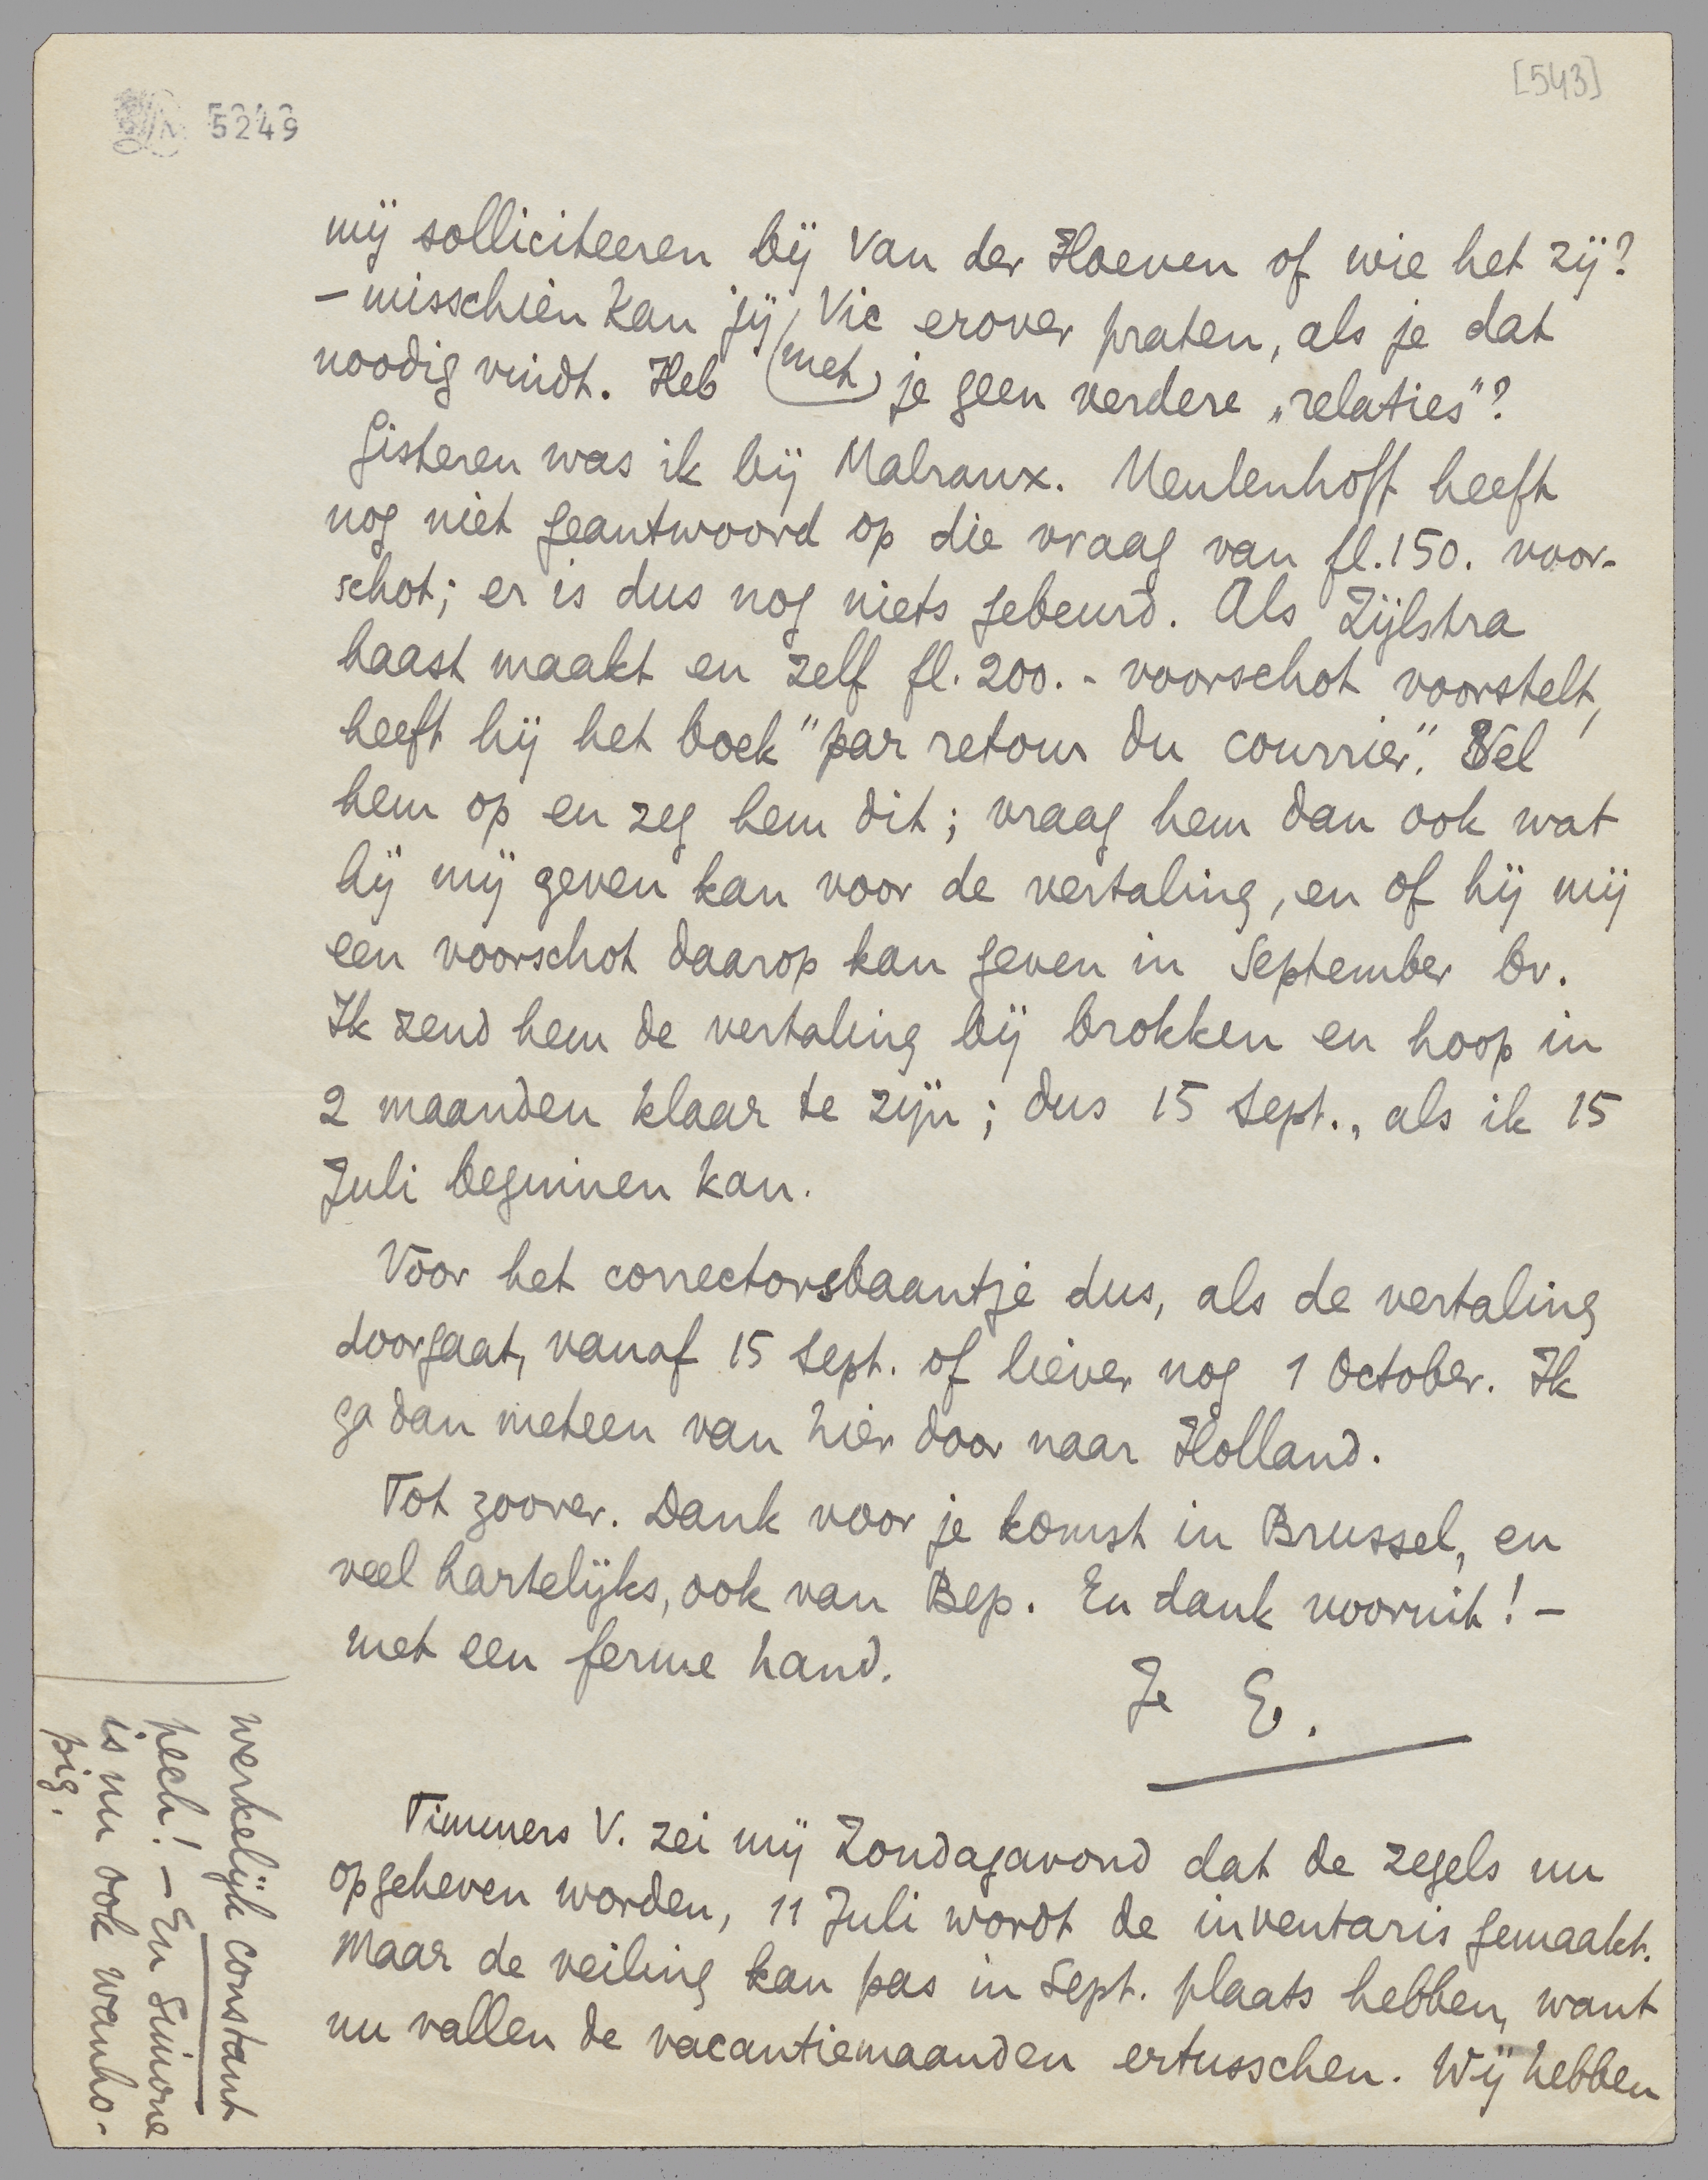 [543]
5249
mij solliciteeren bij Van der Hoeven of wie het zij?
– misschien kan jij met Vic erover praten, als je dat
noodig vindt. Heb je geen verdere „relaties"?
Gisteren was ik bij Malraux. Meulenhoff heeft
nog niet geantwoord op die vraag van fl. 150. voor-
schot; er is dus nog niets gebeurd. Als Zijlstra
haast maakt en zelf fl. 200.- voorschot voorstelt,
heeft hij het boek "par retour du courrier". Bel
hem op en zeg hem dit; vraag hem dan ook wat
hij mij geven kan voor de vertaling, en of hij mij
een voorschot daarop kan geven in September bv.
Ik zend hem de vertaling bij brokken en hoop in
2 maanden klaar te zijn; dus 15 Sept., als ik 15
Juli beginnen kan.
Voor het correctorsbaantje dus, als de vertaling
doorgaat, vanaf 15 Sept. of liever nog 1 October. Ik
ga dan meteen van hier door naar Holland.
Tot zoover. Dank voor je komst in Brussel, en
veel hartelijks, ook van Bep. En dank vooruit! –
met een ferme hand.
Je E.
Timmers V. zei mij Zondagavond dat de zegels nu
opgeheven worden, 11 Juli wordt de inventaris gemaakt.
Maar de veiling kan pas in Sept. plaats hebben, want
nu vallen de vacantiemaanden ertusschen. Wij hebben
werkelijk constant
pech! – En Simone
is nu ook wanho-
pig.